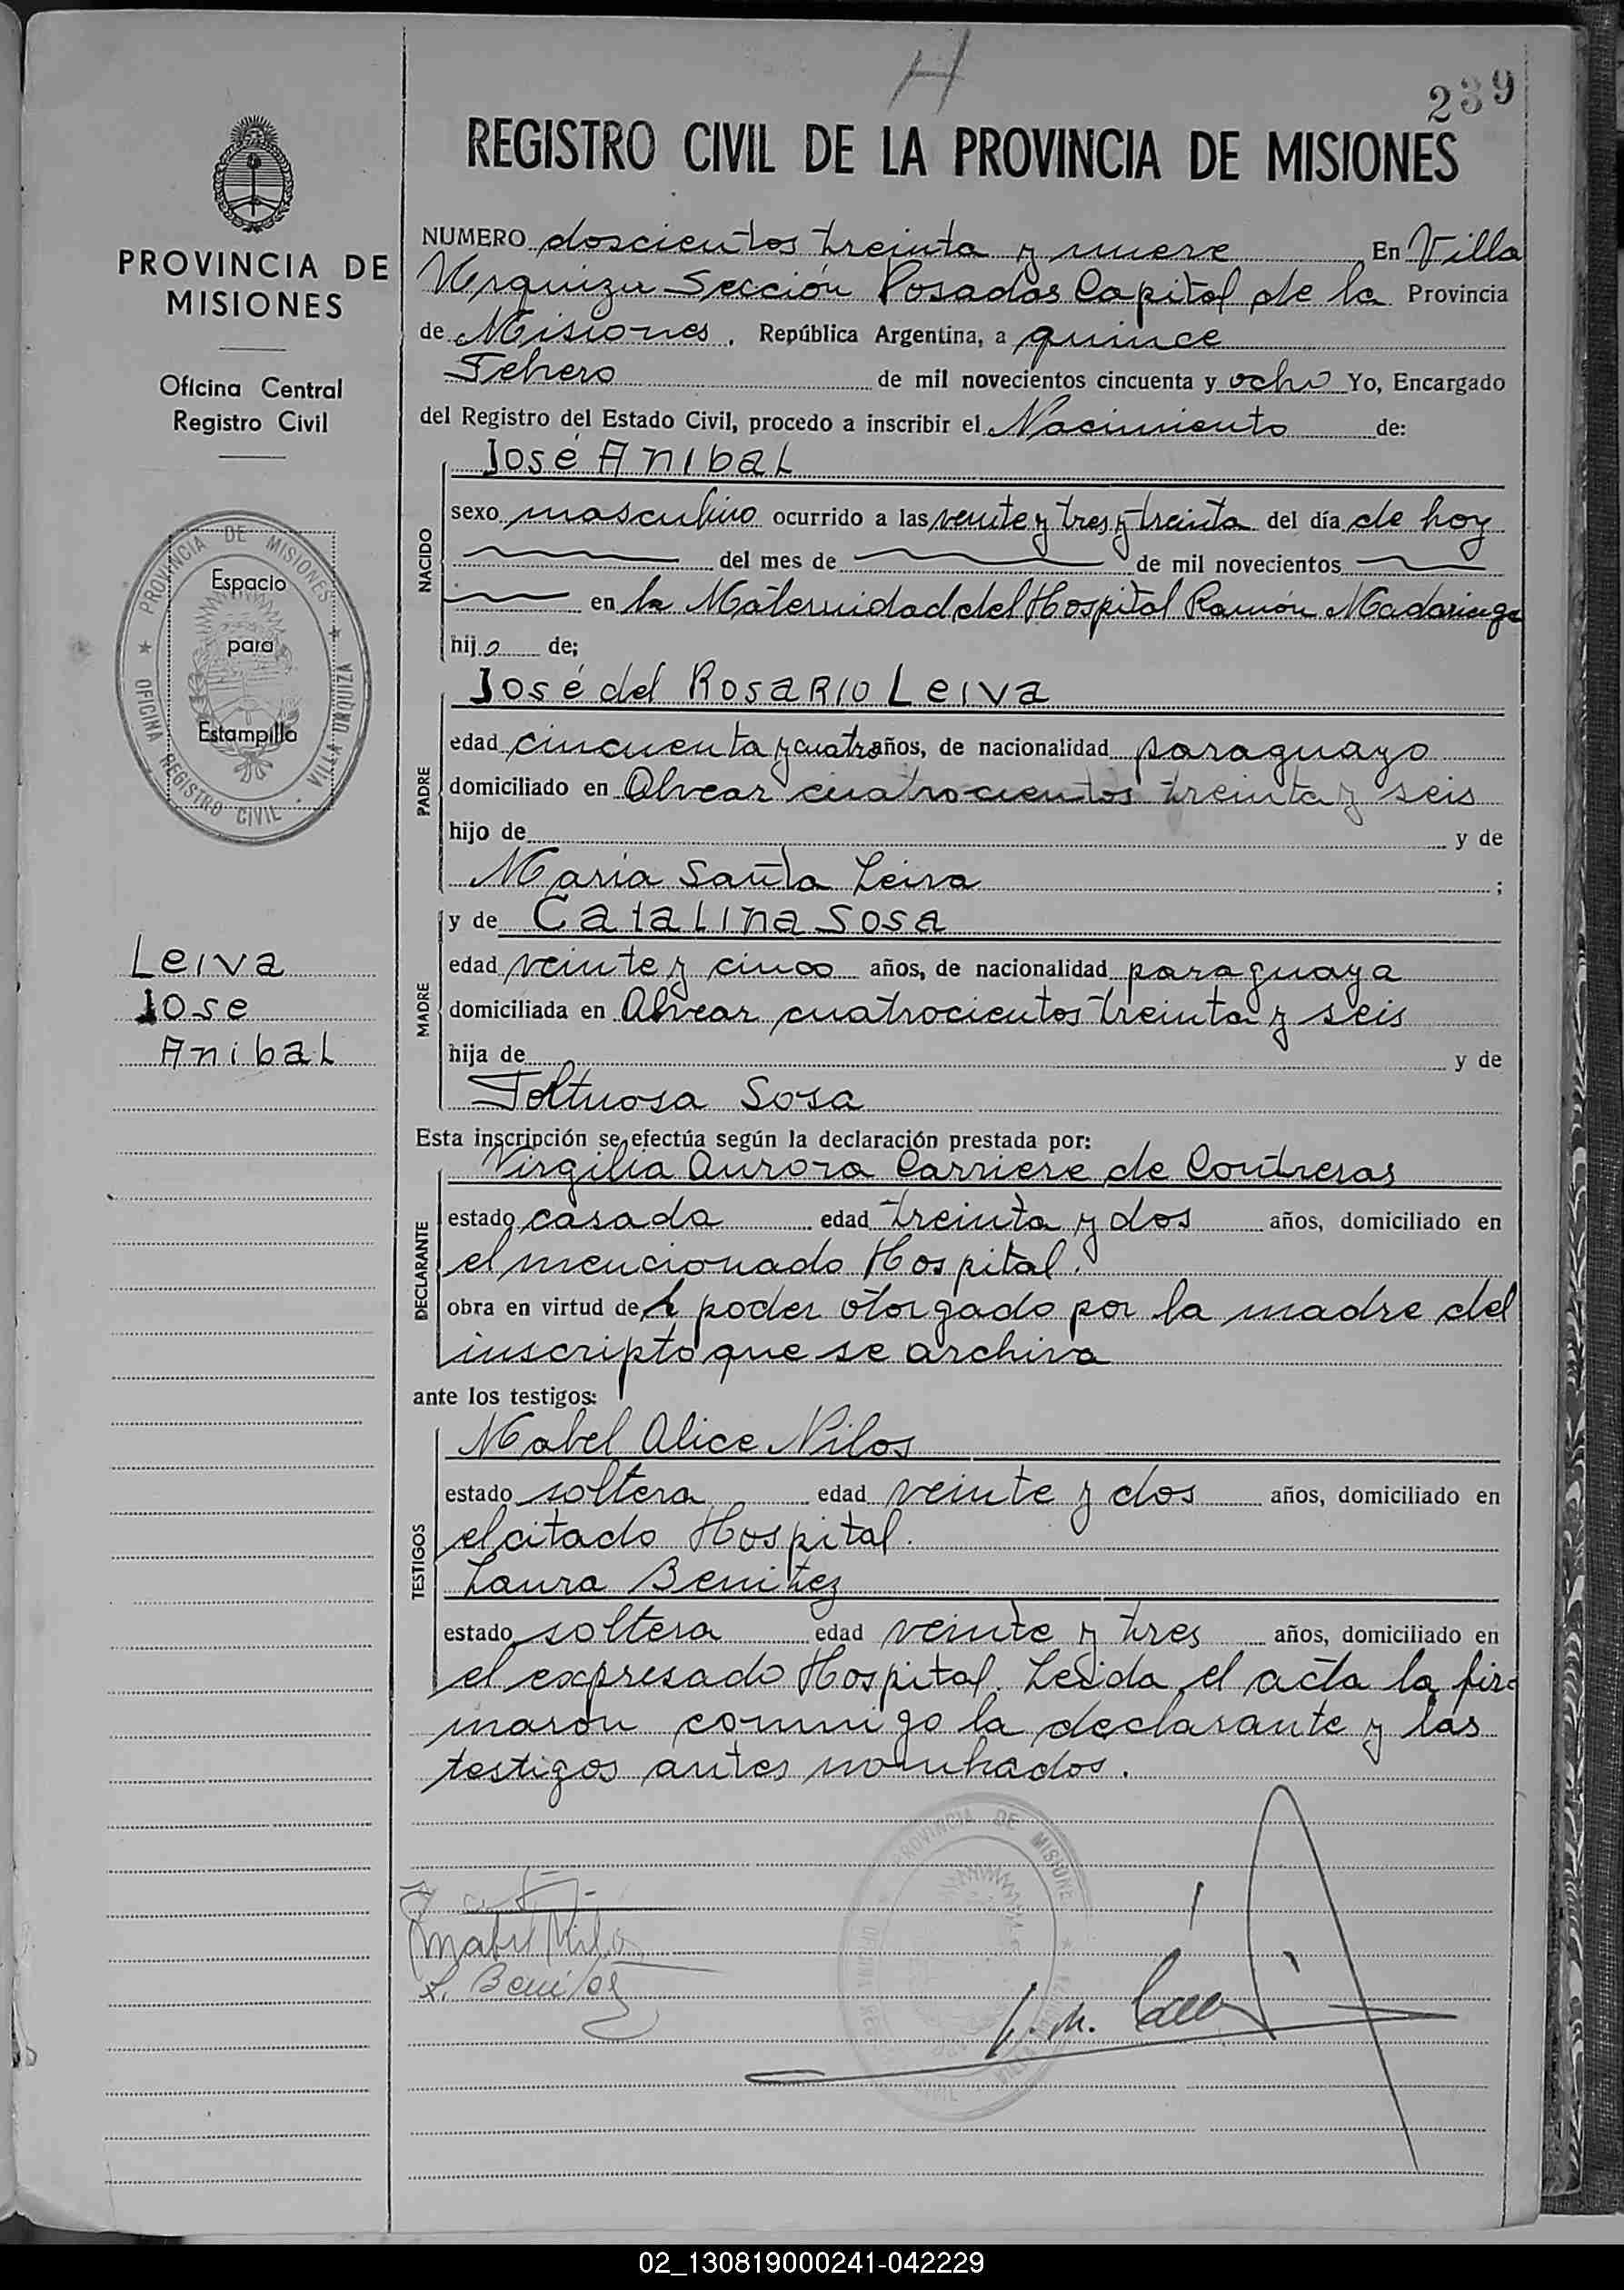 H
239
REGISTRO CIVIL DE LA PROVINCIA DE MISIONES
PROVINCIA DE
MISIONES
Oficina Central
Registro Civil
PROVINCIA DE MISIONES
OFICINA REGISTRO CIVIL - VILLA URQUIZA
Espacio
para
Estampilla
Leiva
Jose
Anibal
NUMERO doscientos treinta y nueve En Villa
Urquiza Sección Posadas Capital de la Provincia
de Misiones, República Argentina, a quince
Febrero de mil novecientos cincuenta y ocho Yo, Encargado
del Registro del Estado Civil, procedo a inscribir el Nacimiento de:
NACIDO
José Anibal
sexo masculino ocurrido a las veinte y tres y treinta del día de hoy
del mes de de mil novecientos
en la Maternidad del Hospital Ramón Madariaga
hijo de;
PADRE
José del Rosario Leiva
edad cincuenta y cuatro años, de nacionalidad paraguayo
domiciliado en Alvear cuatrocientos treinta y seis
hijo de y de
Maria Santa Leiva ;
MADRE
y de Catalina Sosa
edad veinte y cinco años, de nacionalidad paraguaya
domiciliada en Alvear cuatrocientos treinta y seis
hija de y de
Toltuosa Sosa
Esta inscripción se efectúa según la declaración prestada por:
DECLARANTE
Virgilia Aurora Carriere de Contreras
estado casada edad treinta y dos años, domiciliado en
el mencionado Hospital.
obra en virtud de poder otorgado por la madre del
inscripto que se archiva
ante los testigos:
TESTIGOS
Mabel Alice Nilos
estado soltera edad veinte y dos años, domiciliado en
el citado Hospital.
Laura Benitez
estado soltera edad veinte y tres años, domiciliado en
el expresado Hospital. Leida el acta la fir-
maron conmigo la declarante y las
testigos antes nombrados.
PROVINCIA DE MISIONES
Mabel Nilos
L. Benitez
02_130819000241-042229